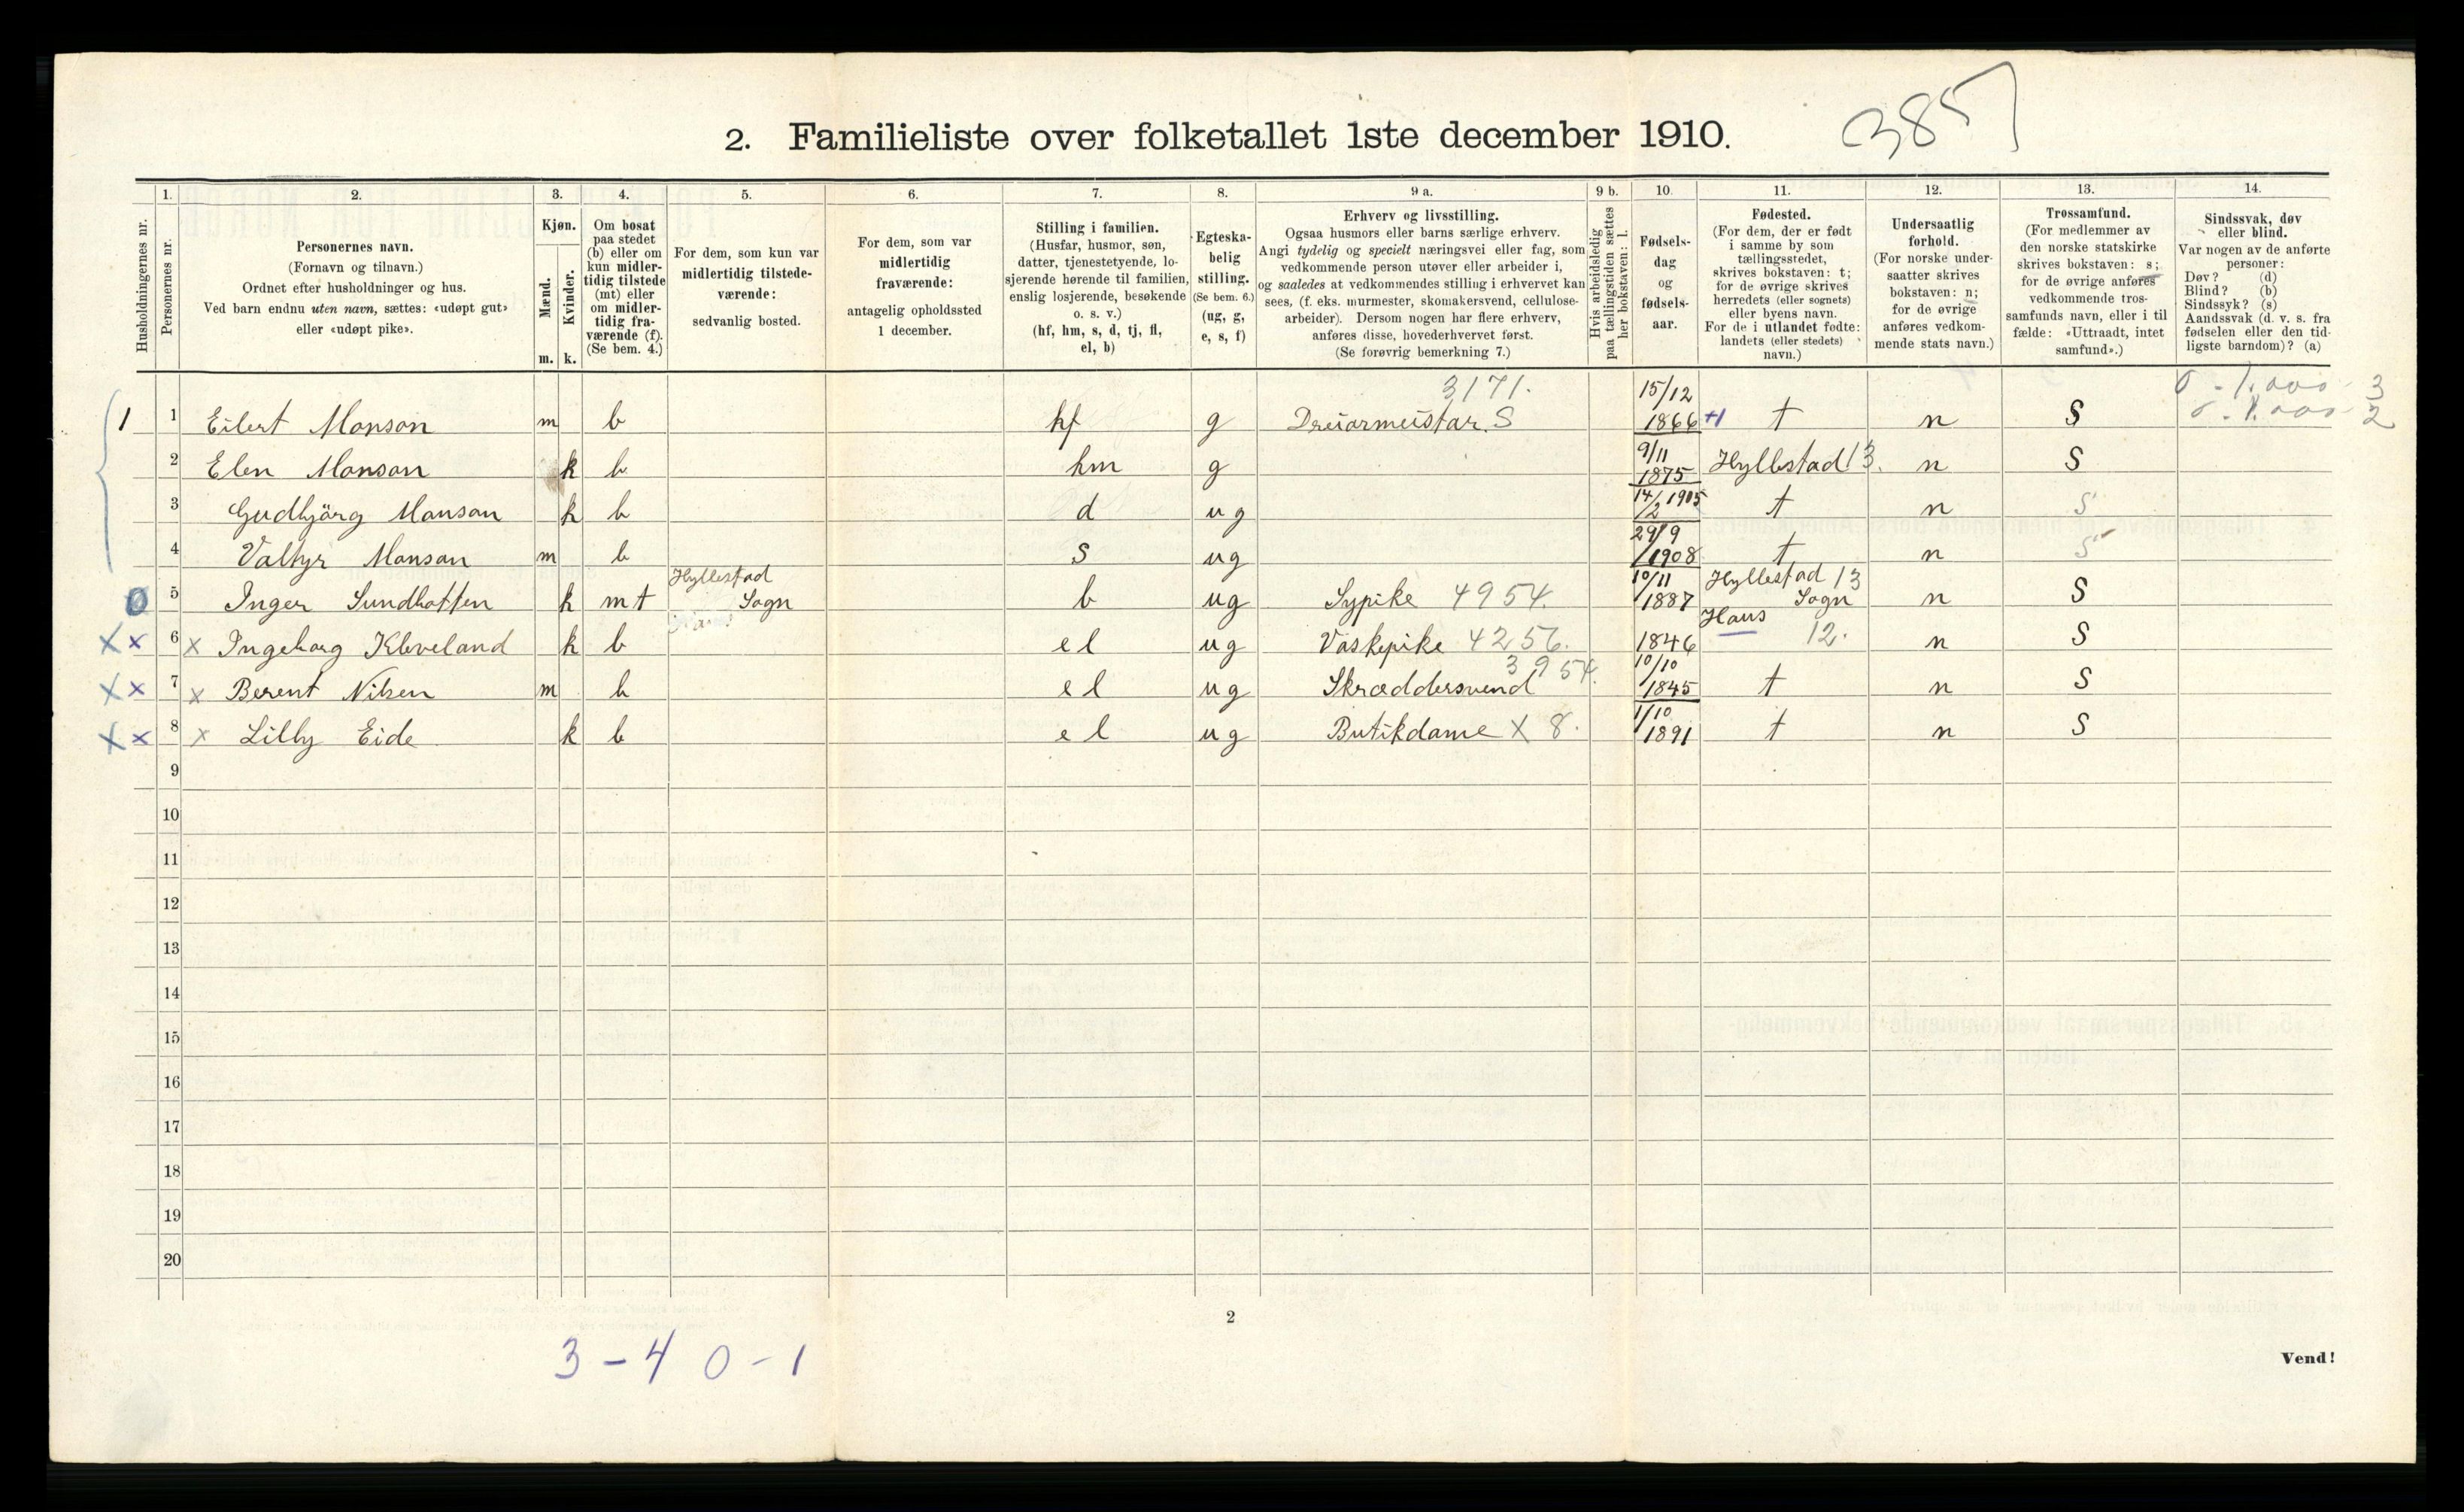 3857
2. Familieliste over folketallet 1ste december 1910.
Husholdningernes nr.
1. Personernes nr.
2. Personernes navn. (Fornavn og tilnavn.) Ordnet efter husholdninger og hus. Ved barn endnu uten navn, sættes: «udøpt gut» eller «udøpt pike».
3. Kjøn. Mænd. m. Kvinder. k.
4. Om bosat paa stedet (b) eller om kun midlertidig tilstede (mt) eller om midlertidig fraværende (f). (Se bem. 4.)
5. For dem, som kun var midlertidig tilstedeværende: sedvanlig bosted.
6. For dem, som var midlertidig fraværende: antagelig opholdssted 1 december.
7. Stilling i familien. (Husfar, husmor, søn, datter, tjenestetyende, losjerende hørende til familien, enslig losjerende, besøkende o. s. v.) (hf, hm, s, d, tj, fl, el, b)
8. Egteskabelig stilling. (Se bem. 6.) (ug, g, e, s, f)
9 a. Erhverv og livsstilling. Ogsaa husmors eller barns særlige erhverv. Angi tydelig og specielt næringsvei eller fag, som vedkommende person utøver eller arbeider i, og saaledes at vedkommendes stilling i erhvervet kan sees, (f. eks. murmester, skomakersvend, cellulosearbeider). Dersom nogen har flere erhverv, anføres disse, hovederhvervet først. (Se forøvrig bemerkning 7.)
9 b. Hvis arbeidsledig paa tællingstiden sættes her bokstaven: l.
10. Fødselsdag og fødselsaar.
11. Fødested. (For dem, der er født i samme by som tællingsstedet, skrives bokstaven: t; for de øvrige skrives herredets (eller sognets) eller byens navn. For de i utlandet fødte: landets (eller stedets) navn.)
12. Undersaatlig forhold. (For norske undersaatter skrives bokstaven: n; for de øvrige anføres vedkommende stats navn.)
13. Trossamfund. (For medlemmer av den norske statskirke skrives bokstaven: s; for de øvrige anføres vedkommende trossamfunds navn, eller i tilfælde: «Uttraadt, intet samfund».)
14. Sindssvak, døv eller blind. Var nogen av de anførte personer: Døv? (d) Blind? (b) Sindssyk? (s) Aandssvak (d. v. s. fra fødselen eller den tidligste barndom)? (a)
1 1 Eilert Monson m b hf g Dreiarmeistar. S 3171. 15/12 1866 +1 t n S
2 Elen Monson k b hm g 9/11 1875 Hyllestad 13. n S
3 Gudbjörg Monson k b d ug 14/2 1905 t n S
4 Valtyr Monson m b s ug 29/9 1908 t n S
0 5 Inger Sundhotten k mt Hyllestad Sogn b ug Sypike 4954. 10/11 1887 Hyllestad 13 Sogn n S
X x 6 x Ingeborg Kleveland k b el ug Vaskepike 4256. 1846 Haus 12. n S
X x 7 x Berent Nilsen m b el ug Skræddersvend 3954. 10/10 1845 t n S
X x 8 x Lilly Eide k b el ug Butikdame X 8. 1/10 1891 t n S
9
10
11
12
13
14
15
16
17
18
19
20
2
3 - 4 0 - 1
Vend!